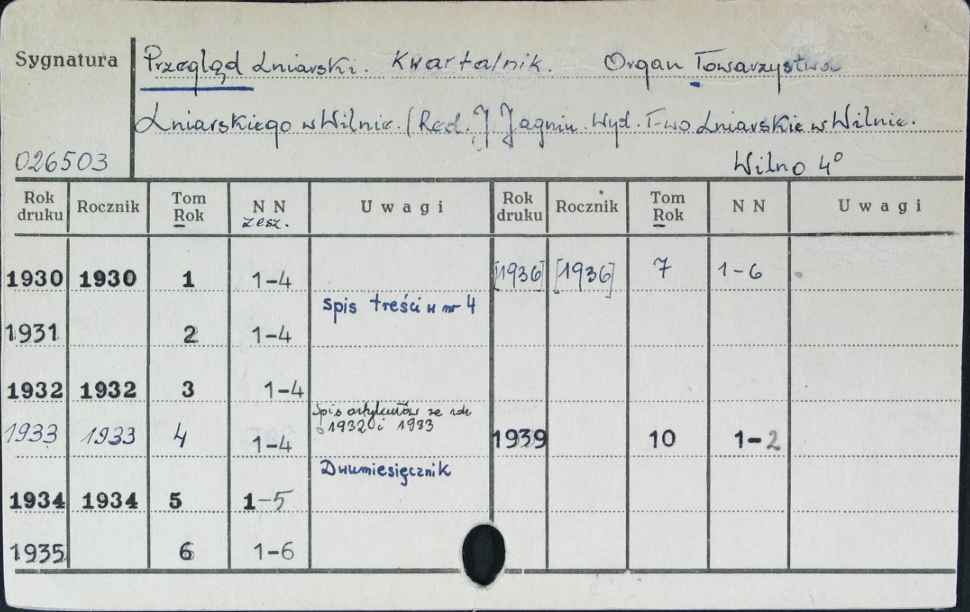 Sygnatura Przegląd Lniarski. Kwartalnik. Organ Towarzystwa
Lniarskiego w Wilnie. (Red. J Jagmin. Wyd. T-wo Lniarskie w Wilnie.
026503 Wilno 4°
Rok druku Rocznik Tom Rok NN zesz. Uwagi Rok druku Rocznik Tom Rok NN Uwagi
1930 1930 1 1-4 [1936] [1936] 7 1-6
spis treści w nr 4
1931 2 1-4
1932 1932 3 1-4
Spis artykułów za rok
1932 i 1933
1933 1933 4 1-4 1939 10 1-2
Dwumiesięcznik
1934 1934 5 1-5
1935 6 1-6